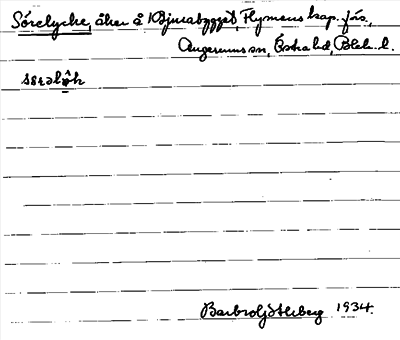 Sörelycke, åker å Bjursabygget, Flymens kap. förs.,
Augerums sn, Östra hd, Blek. l.
Barbro Göthberg 1934.